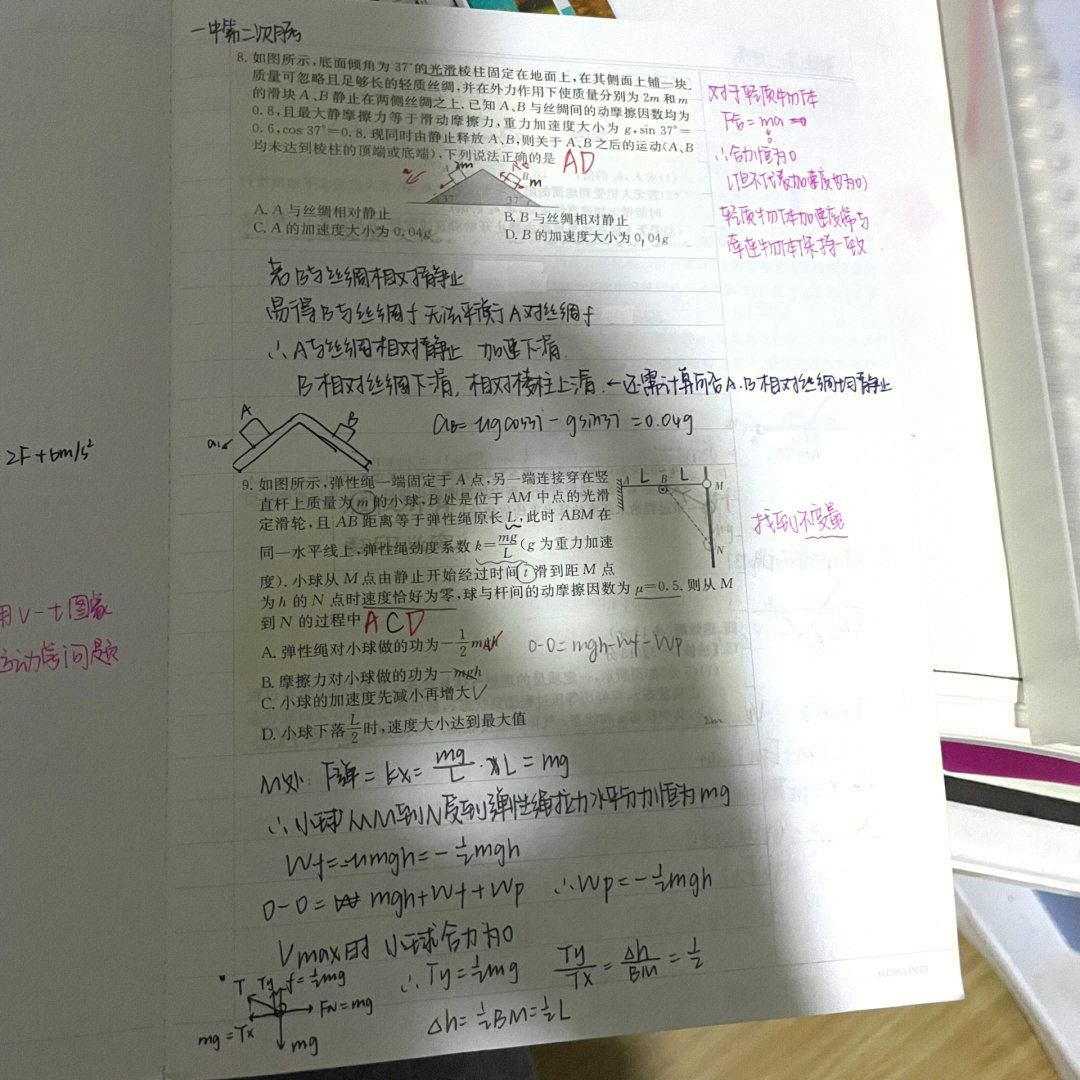 一中第二次月考
8. 如图所示,底面倾角为 37°的光滑棱柱固定在地面上,在其侧面上铺一块
质量可忽略且足够长的轻质丝绸,并在外力作用下使质量分别为 2m 和 m
的滑块 A、B 静止在两侧丝绸之上. 已知 A、B 与丝绸间的动摩擦因数均为
0.8,且最大静摩擦力等于滑动摩擦力,重力加速度大小为 g,sin 37°=
0.6,cos 37°=0.8. 现同时由静止释放 A、B,则关于 A、B 之后的运动(A、B
均未达到棱柱的顶端或底端),下列说法正确的是 AD
A 2m B m
37° 37°
A. A 与丝绸相对静止
B. B 与丝绸相对静止
C. A 的加速度大小为 0.04g
D. B 的加速度大小为 0.04g
对于轻质物体
F合=ma
0
∴合力恒为0
(但不代表加速度也为0)
轻质物体加速度常与
相连物体保持一致
若B与丝绸相对静止
易得B与丝绸f无法平衡A对丝绸f
∴A与丝绸相对静止 加速下滑
B相对丝绸下滑,相对棱柱上滑.←还需计算可否A.B相对丝绸均静止
aB=μgcos37-gsin37=0.04g
A B
2F+6m/s²
9. 如图所示,弹性绳一端固定于 A 点,另一端连接穿在竖
直杆上质量为 m 的小球,B 处是位于 AM 中点的光滑
定滑轮,且 AB 距离等于弹性绳原长 L,此时 ABM 在
同一水平线上,弹性绳劲度系数 k=mg/L(g 为重力加速
度). 小球从 M 点由静止开始经过时间 t 滑到距 M 点
为 h 的 N 点时速度恰好为零,球与杆间的动摩擦因数为 μ=0.5. 则从 M
到 N 的过程中 ACD
A L B L M
N
找到不变量
A. 弹性绳对小球做的功为-1/2mgh
0-0=mgh-Wf-Wp
B. 摩擦力对小球做的功为-mgh
C. 小球的加速度先减小再增大√
D. 小球下落L/2时,速度大小达到最大值
用v-t图象
运动学问题
M处: F弹=kx=mg/L·L=mg
∴小球从M到N受到弹性绳拉力水平分力恒为mg
Wf=-μmgh=-1/2mgh
0-0=mgh+Wf+Wp ∴Wp=-1/2mgh
Vmax时 小球合力为0
∴Ty=1/2mg Ty/Tx=Δh/BM=1/2
Δh=1/2BM=1/2L
T Ty f=1/2mg
FN=mg
mg=Tx
mg
KOKUYO